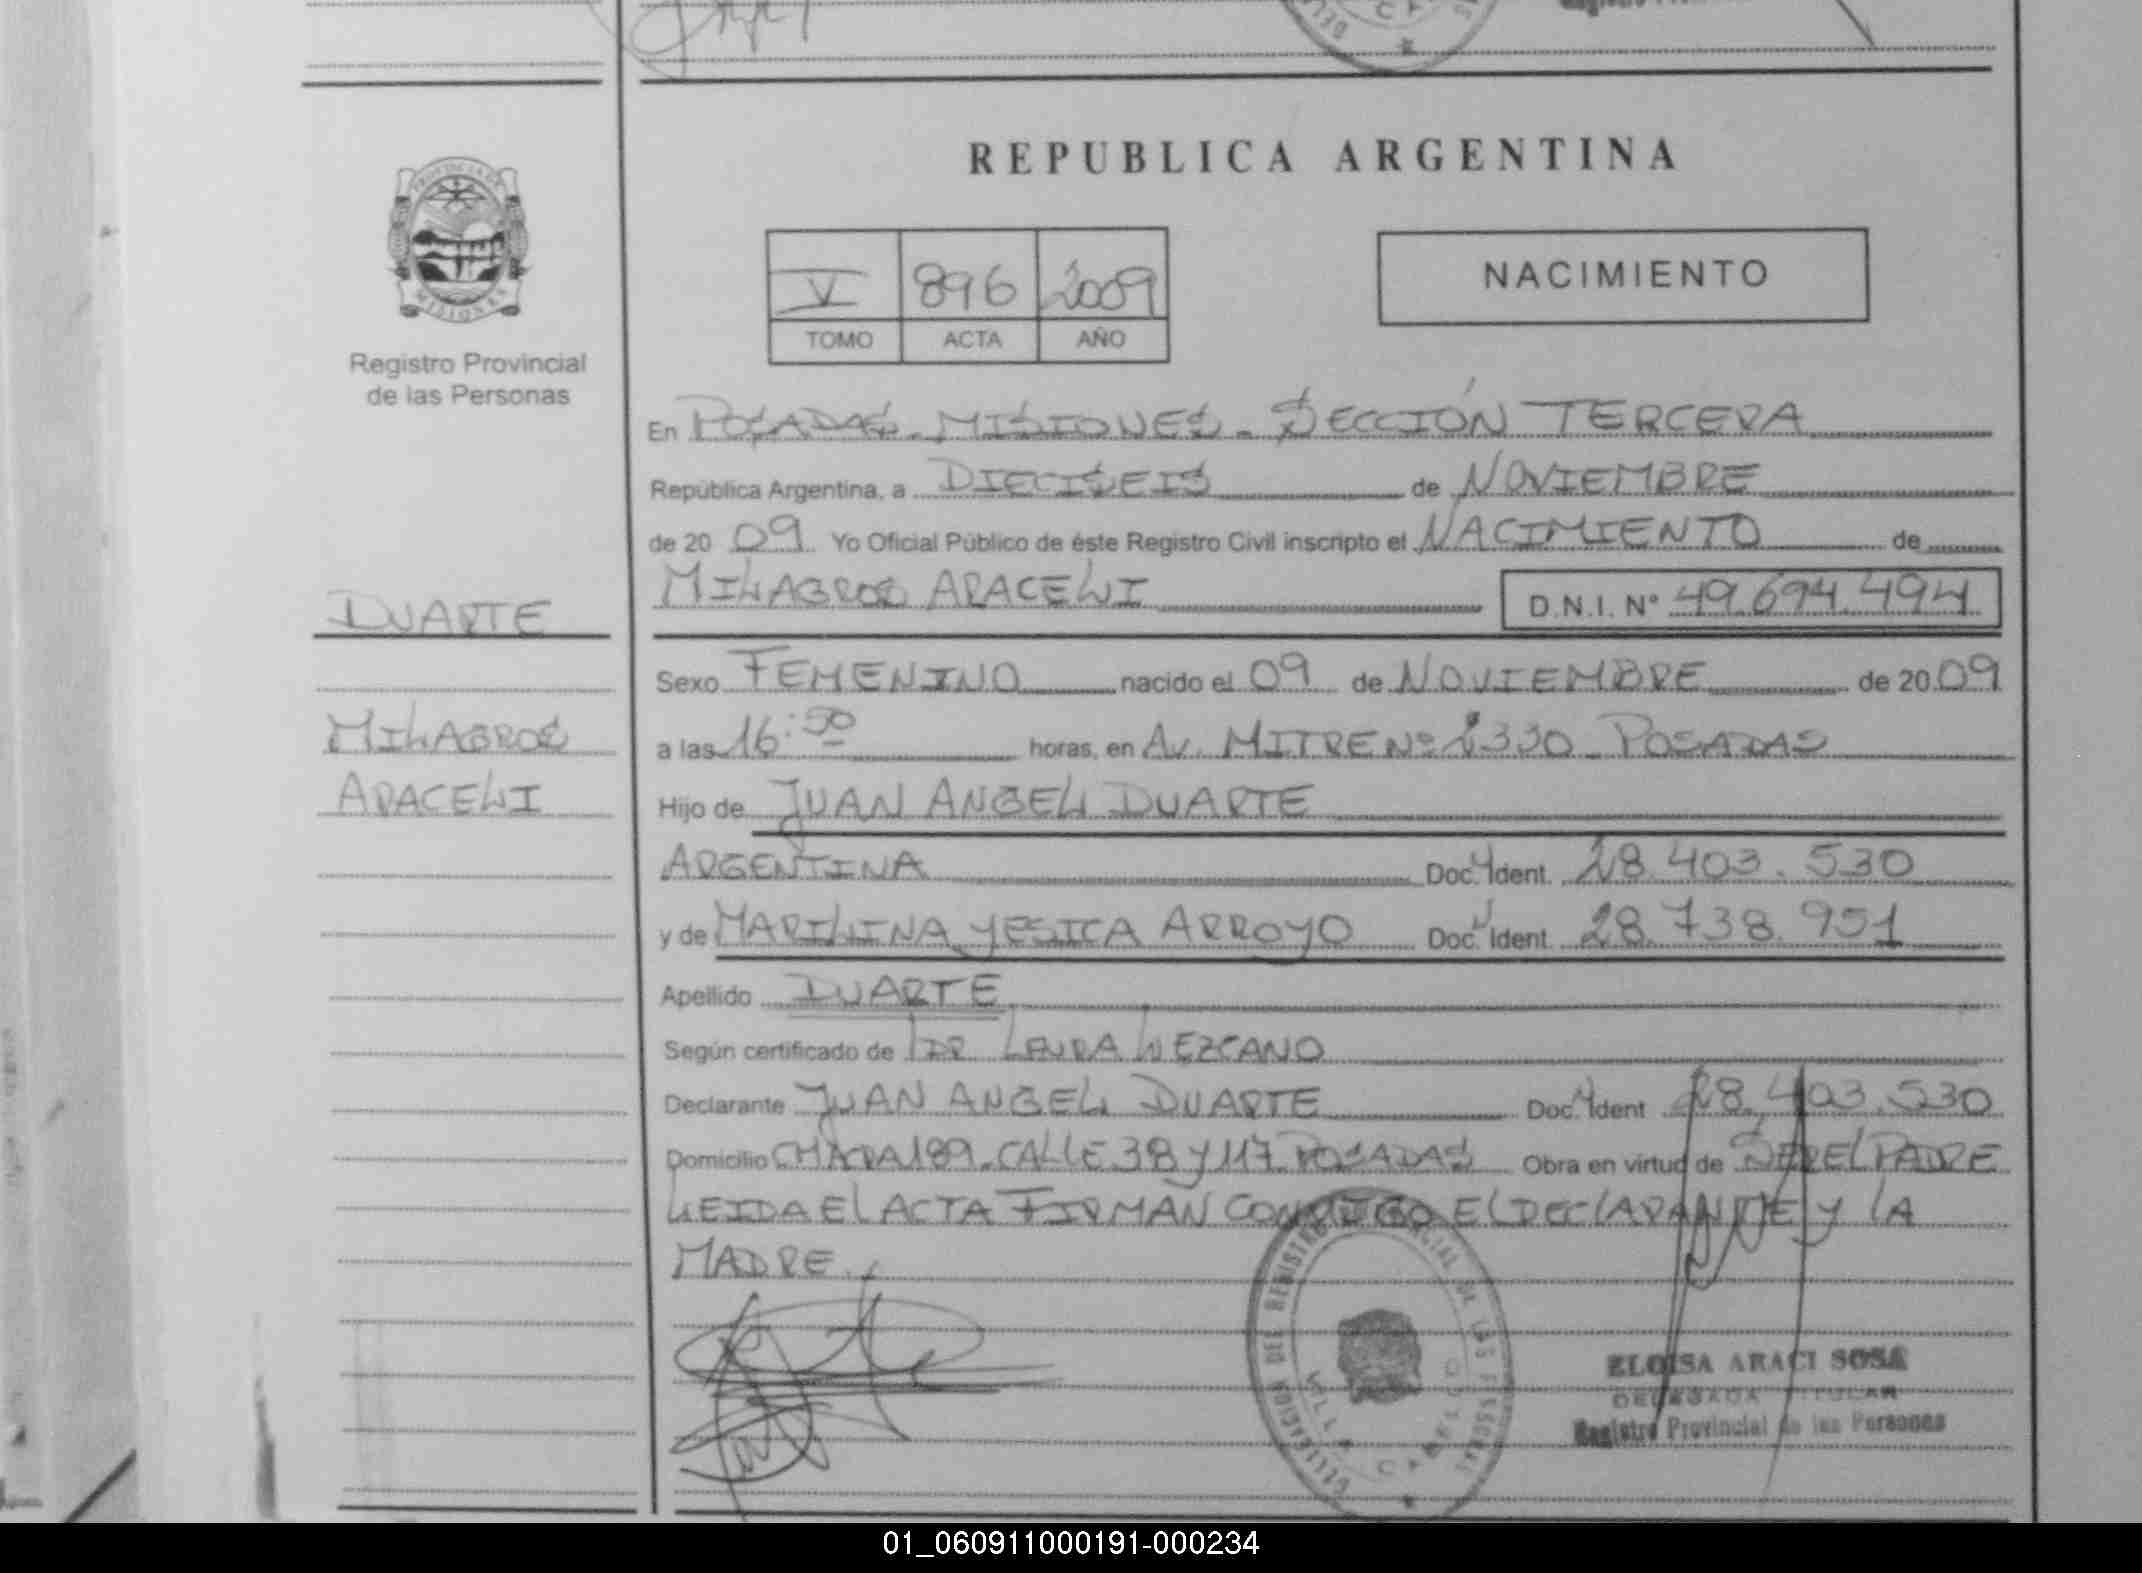 REPUBLICA ARGENTINA
PROVINCIA DE
MISIONES
Registro Provincial
de las Personas
V 896 2009
TOMO ACTA AÑO
NACIMIENTO
En POSADAS - MISIONES - SECCIÓN TERCERA
República Argentina, a DIECISEIS de NOVIEMBRE
de 20 09 Yo Oficial Público de éste Registro Civil inscripto el NACIMIENTO de
MILAGROS ARACELI D.N.I. Nº 49.694.494
DUARTE
MILAGROS
ARACELI
Sexo FEMENINO nacido el 09 de NOVIEMBRE de 20 09
a las 16:50 horas, en AV. MITRE Nº 2330 - POSADAS
Hijo de JUAN ANGEL DUARTE
ARGENTINA Doc. Ident. 28.403.530
y de MARILINA YESICA ARROYO Doc. Ident. 28.738.951
Apellido DUARTE
Según certificado de DR LAURA LEZCANO
Declarante JUAN ANGEL DUARTE Doc. Ident 28.403.530
Domicilio CHACRA 189 - CALLE 38 Y 117 POSADAS Obra en virtud de SER EL PADRE
LEIDA EL ACTA FIRMAN CONMIGO EL DECLARANTE Y LA
MADRE.
ELOISA ARACI SOSA
DELEGADA TITULAR
Registro Provincial de las Personas
01_060911000191-000234